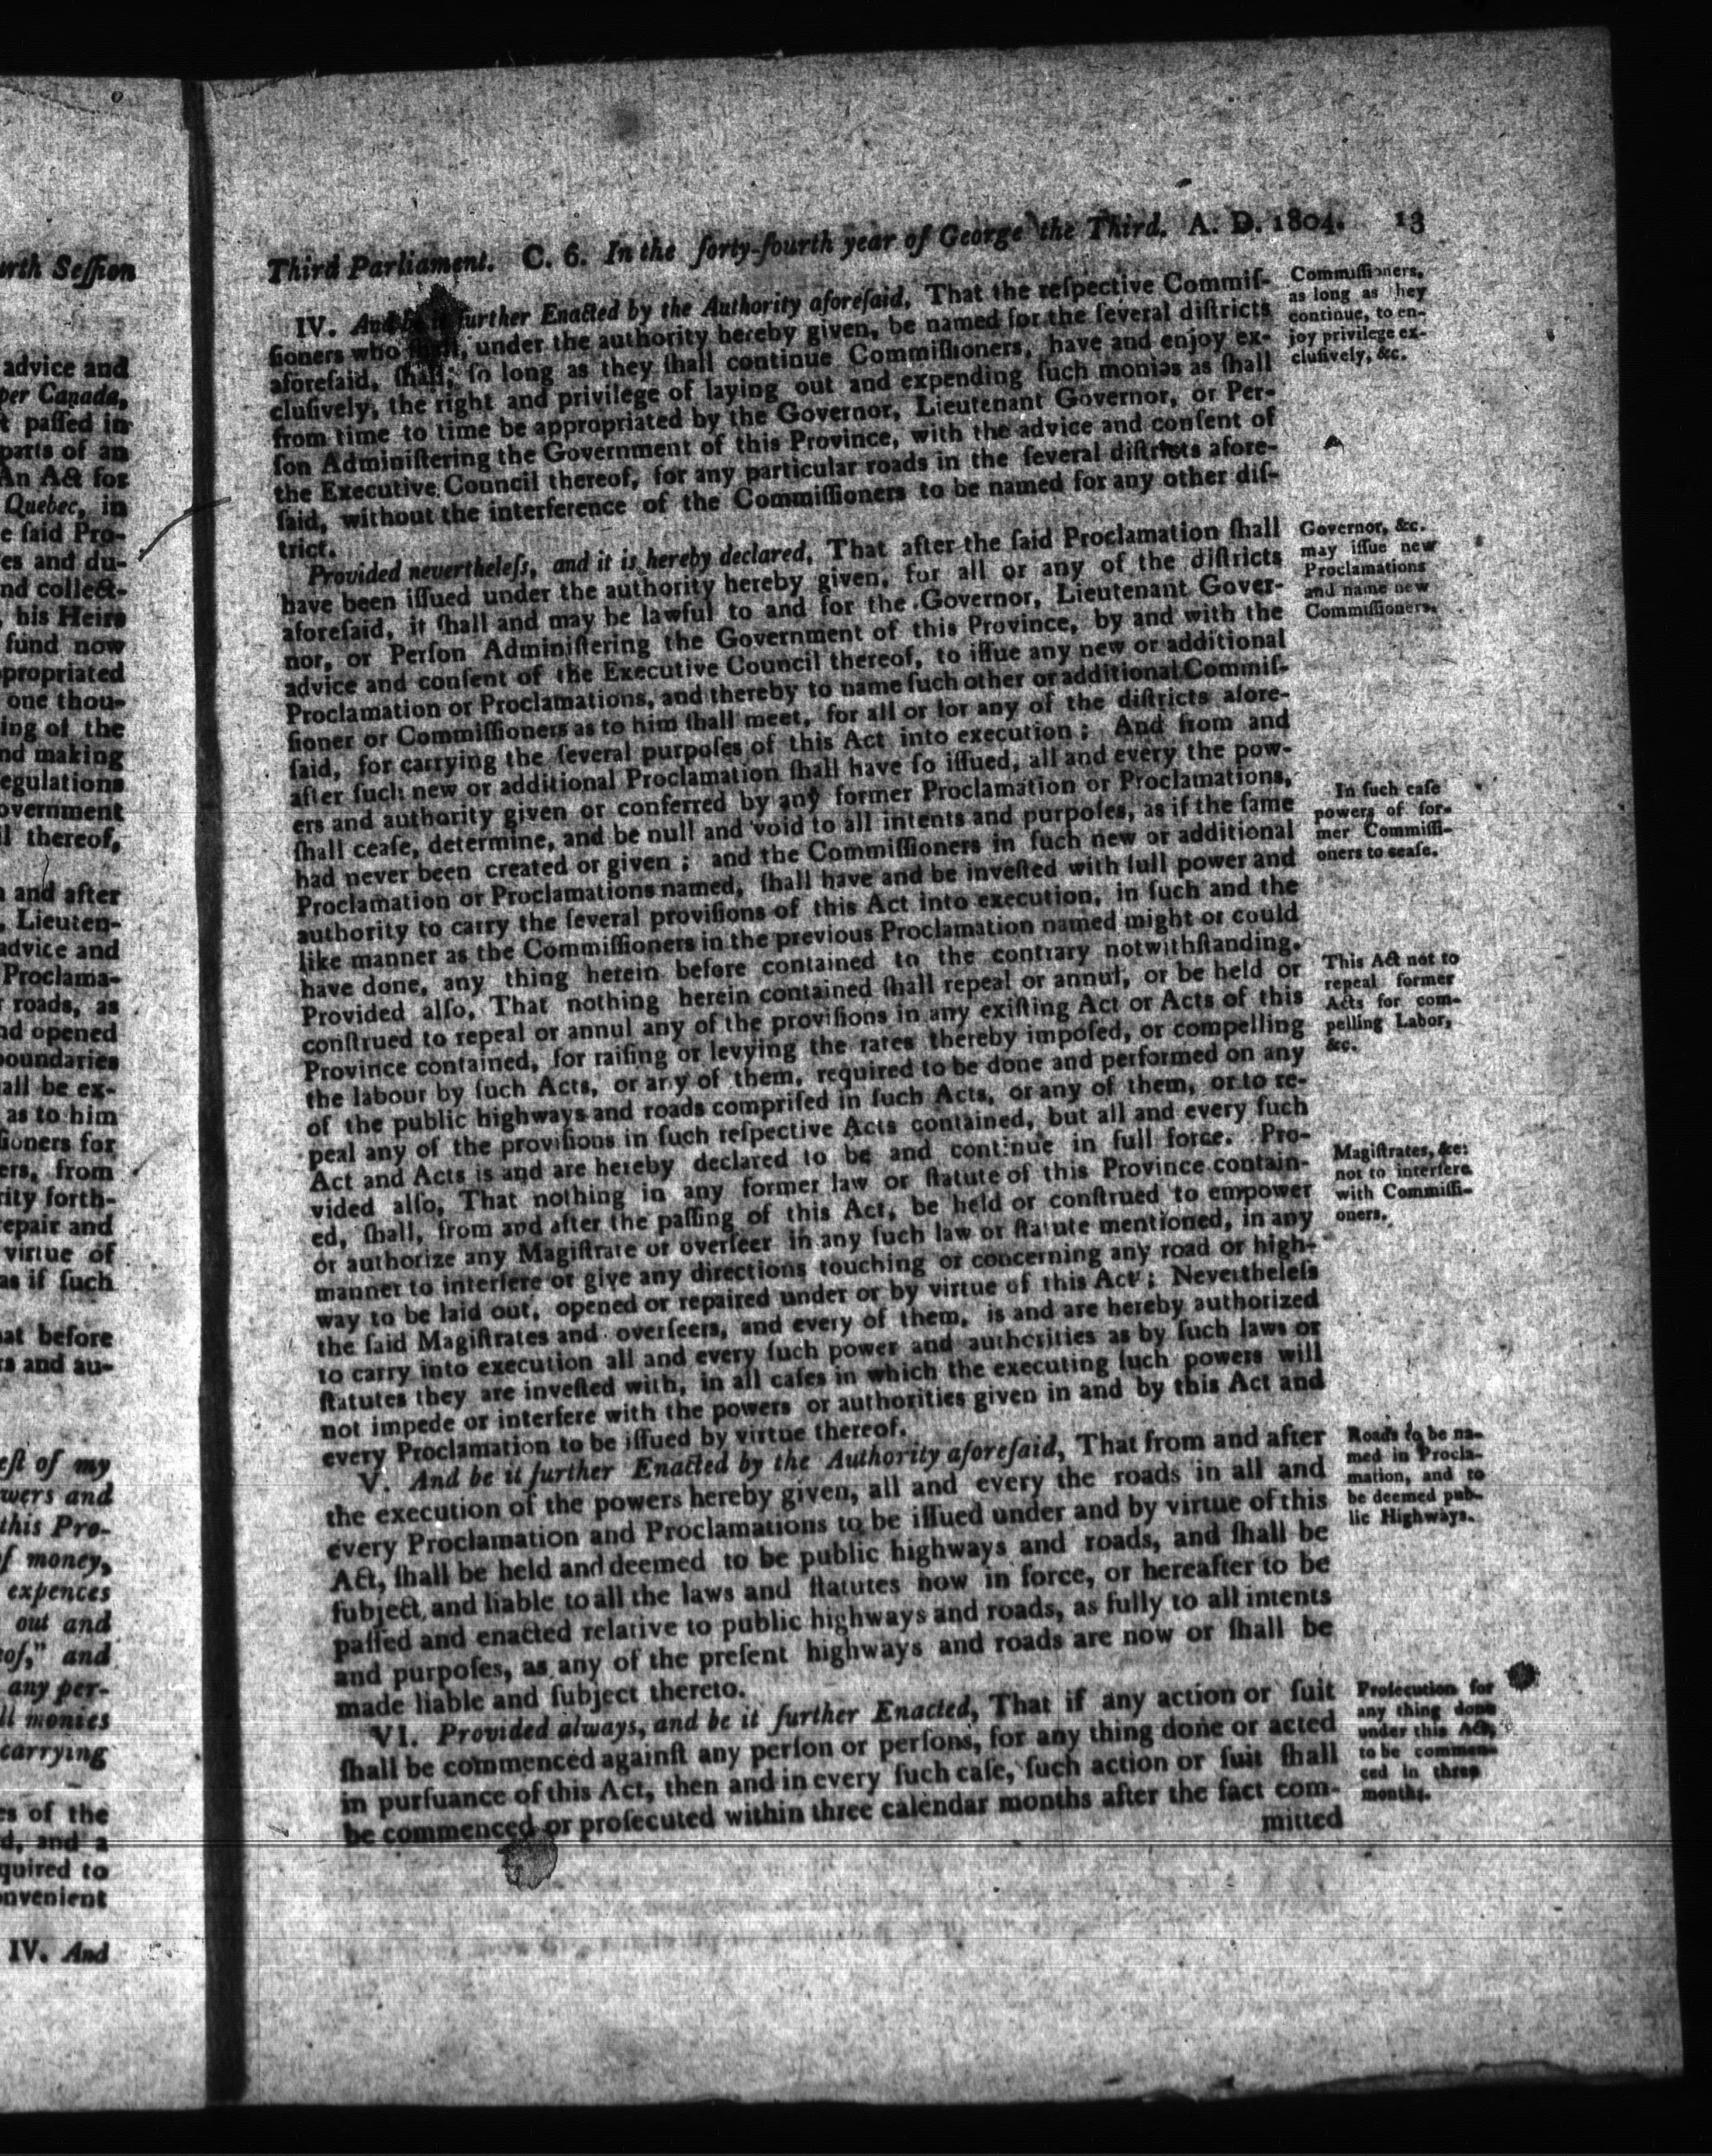 urth Seſſion
advice and
per Canada,
t paſſed in
parts of an
An Act for
Quebec, in
e ſaid Pro-
es and du-
nd collect-
, his Heirs
fund now
propriated
one thou-
ing of the
nd making
egulations
overnment
il thereof,
n and after
, Lieuten-
advice and
Proclama-
r roads, as
nd opened
boundaries
all be ex-
as to him
ſioners for
ers, from
rity forth-
repair and
virtue of
as if ſuch
hat before
rs and au-
eſt of my
wers and
this Pro-
f money,
expences
out and
eof," and
any per-
ll monies
carrying
es of the
d, and a
quired to
onvenient
IV. And
Third Parliament. C. 6. In the forty-fourth year of George the Third. A. D. 1804. 13
IV. And be it further Enacted by the Authority aforeſaid, That the reſpective Commiſ-
ſioners who ſhall, under the authority hereby given, be named for the ſeveral diſtricts
aforeſaid, ſhall, ſo long as they ſhall continue Commiſſioners, have and enjoy ex-
cluſively, the right and privilege of laying out and expending ſuch monies as ſhall
from time to time be appropriated by the Governor, Lieutenant Governor, or Per-
ſon Adminiſtering the Government of this Province, with the advice and conſent of
the Executive Council thereof, for any particular roads in the ſeveral diſtricts afore-
ſaid, without the interference of the Commiſſioners to be named for any other diſ-
trict.
Commiſſioners,
as long as they
continue, to en-
joy privilege ex-
cluſively, &c.
Provided nevertheleſs, and it is hereby declared, That after the ſaid Proclamation ſhall
have been iſſued under the authority hereby given, for all or any of the diſtricts
aforeſaid, it ſhall and may be lawful to and for the Governor, Lieutenant Gover-
nor, or Perſon Adminiſtering the Government of this Province, by and with the
advice and conſent of the Executive Council thereof, to iſſue any new or additional
Proclamation or Proclamations, and thereby to name ſuch other or additional Commiſ-
ſioner or Commiſſioners as to him ſhall meet, for all or for any of the diſtricts afore-
ſaid, for carrying the ſeveral purpoſes of this Act into execution; And from and
after ſuch new or additional Proclamation ſhall have ſo iſſued, all and every the pow-
ers and authority given or conferred by any former Proclamation or Proclamations,
ſhall ceaſe, determine, and be null and void to all intents and purpoſes, as if the ſame
had never been created or given; and the Commiſſioners in ſuch new or additional
Proclamation or Proclamations named, ſhall have and be inveſted with full power and
authority to carry the ſeveral proviſions of this Act into execution, in ſuch and the
like manner as the Commiſſioners in the previous Proclamation named might or could
have done, any thing herein before contained to the contrary notwithſtanding.
Provided alſo, That nothing herein contained ſhall repeal or annul, or be held or
conſtrued to repeal or annul any of the proviſions in any exiſting Act or Acts of this
Province contained, for raiſing or levying the rates thereby impoſed, or compelling
the labour by ſuch Acts, or any of them, required to be done and performed on any
of the public highways and roads compriſed in ſuch Acts, or any of them, or to re-
peal any of the proviſions in ſuch reſpective Acts contained, but all and every ſuch
Act and Acts is and are hereby declared to be and continue in full force. Pro-
vided alſo, That nothing in any former law or ſtatute of this Province contain-
ed, ſhall, from and after the paſſing of this Act, be held or conſtrued to empower
or authorize any Magiſtrate or overſeer in any ſuch law or ſtatute mentioned, in any
manner to interfere or give any directions touching or concerning any road or high-
way to be laid out, opened or repaired under or by virtue of this Act; Nevertheleſs
the ſaid Magiſtrates and overſeers, and every of them, is and are hereby authorized
to carry into execution all and every ſuch power and authorities as by ſuch laws or
ſtatutes they are inveſted with, in all caſes in which the executing ſuch powers will
not impede or interfere with the powers or authorities given in and by this Act and
every Proclamation to be iſſued by virtue thereof.
Governor, &c.
may iſſue new
Proclamations
and name new
Commiſſioners.
In ſuch caſe
powers of for-
mer Commiſſi-
oners to ceaſe.
This Act not to
repeal former
Acts for com-
pelling Labor,
&c.
Magiſtrates, &c:
not to interfere
with Commiſſi-
oners.
V. And be it further Enacted by the Authority aforeſaid, That from and after
the execution of the powers hereby given, all and every the roads in all and
every Proclamation and Proclamations to be iſſued under and by virtue of this
Act, ſhall be held and deemed to be public highways and roads, and ſhall be
ſubject, and liable to all the laws and ſtatutes now in force, or hereafter to be
paſſed and enacted relative to public highways and roads, as fully to all intents
and purpoſes, as any of the preſent highways and roads are now or ſhall be
made liable and ſubject thereto.
Roads to be na-
med in Procla-
mation, and to
be deemed pub-
lic Highways.
VI. Provided always, and be it further Enacted, That if any action or ſuit
ſhall be commenced againſt any perſon or perſons, for any thing done or acted
in purſuance of this Act, then and in every ſuch caſe, ſuch action or ſuit ſhall
be commenced or proſecuted within three calendar months after the fact com-
mitted
Proſecution for
any thing done
under this Act,
to be commen-
ced in three
months.